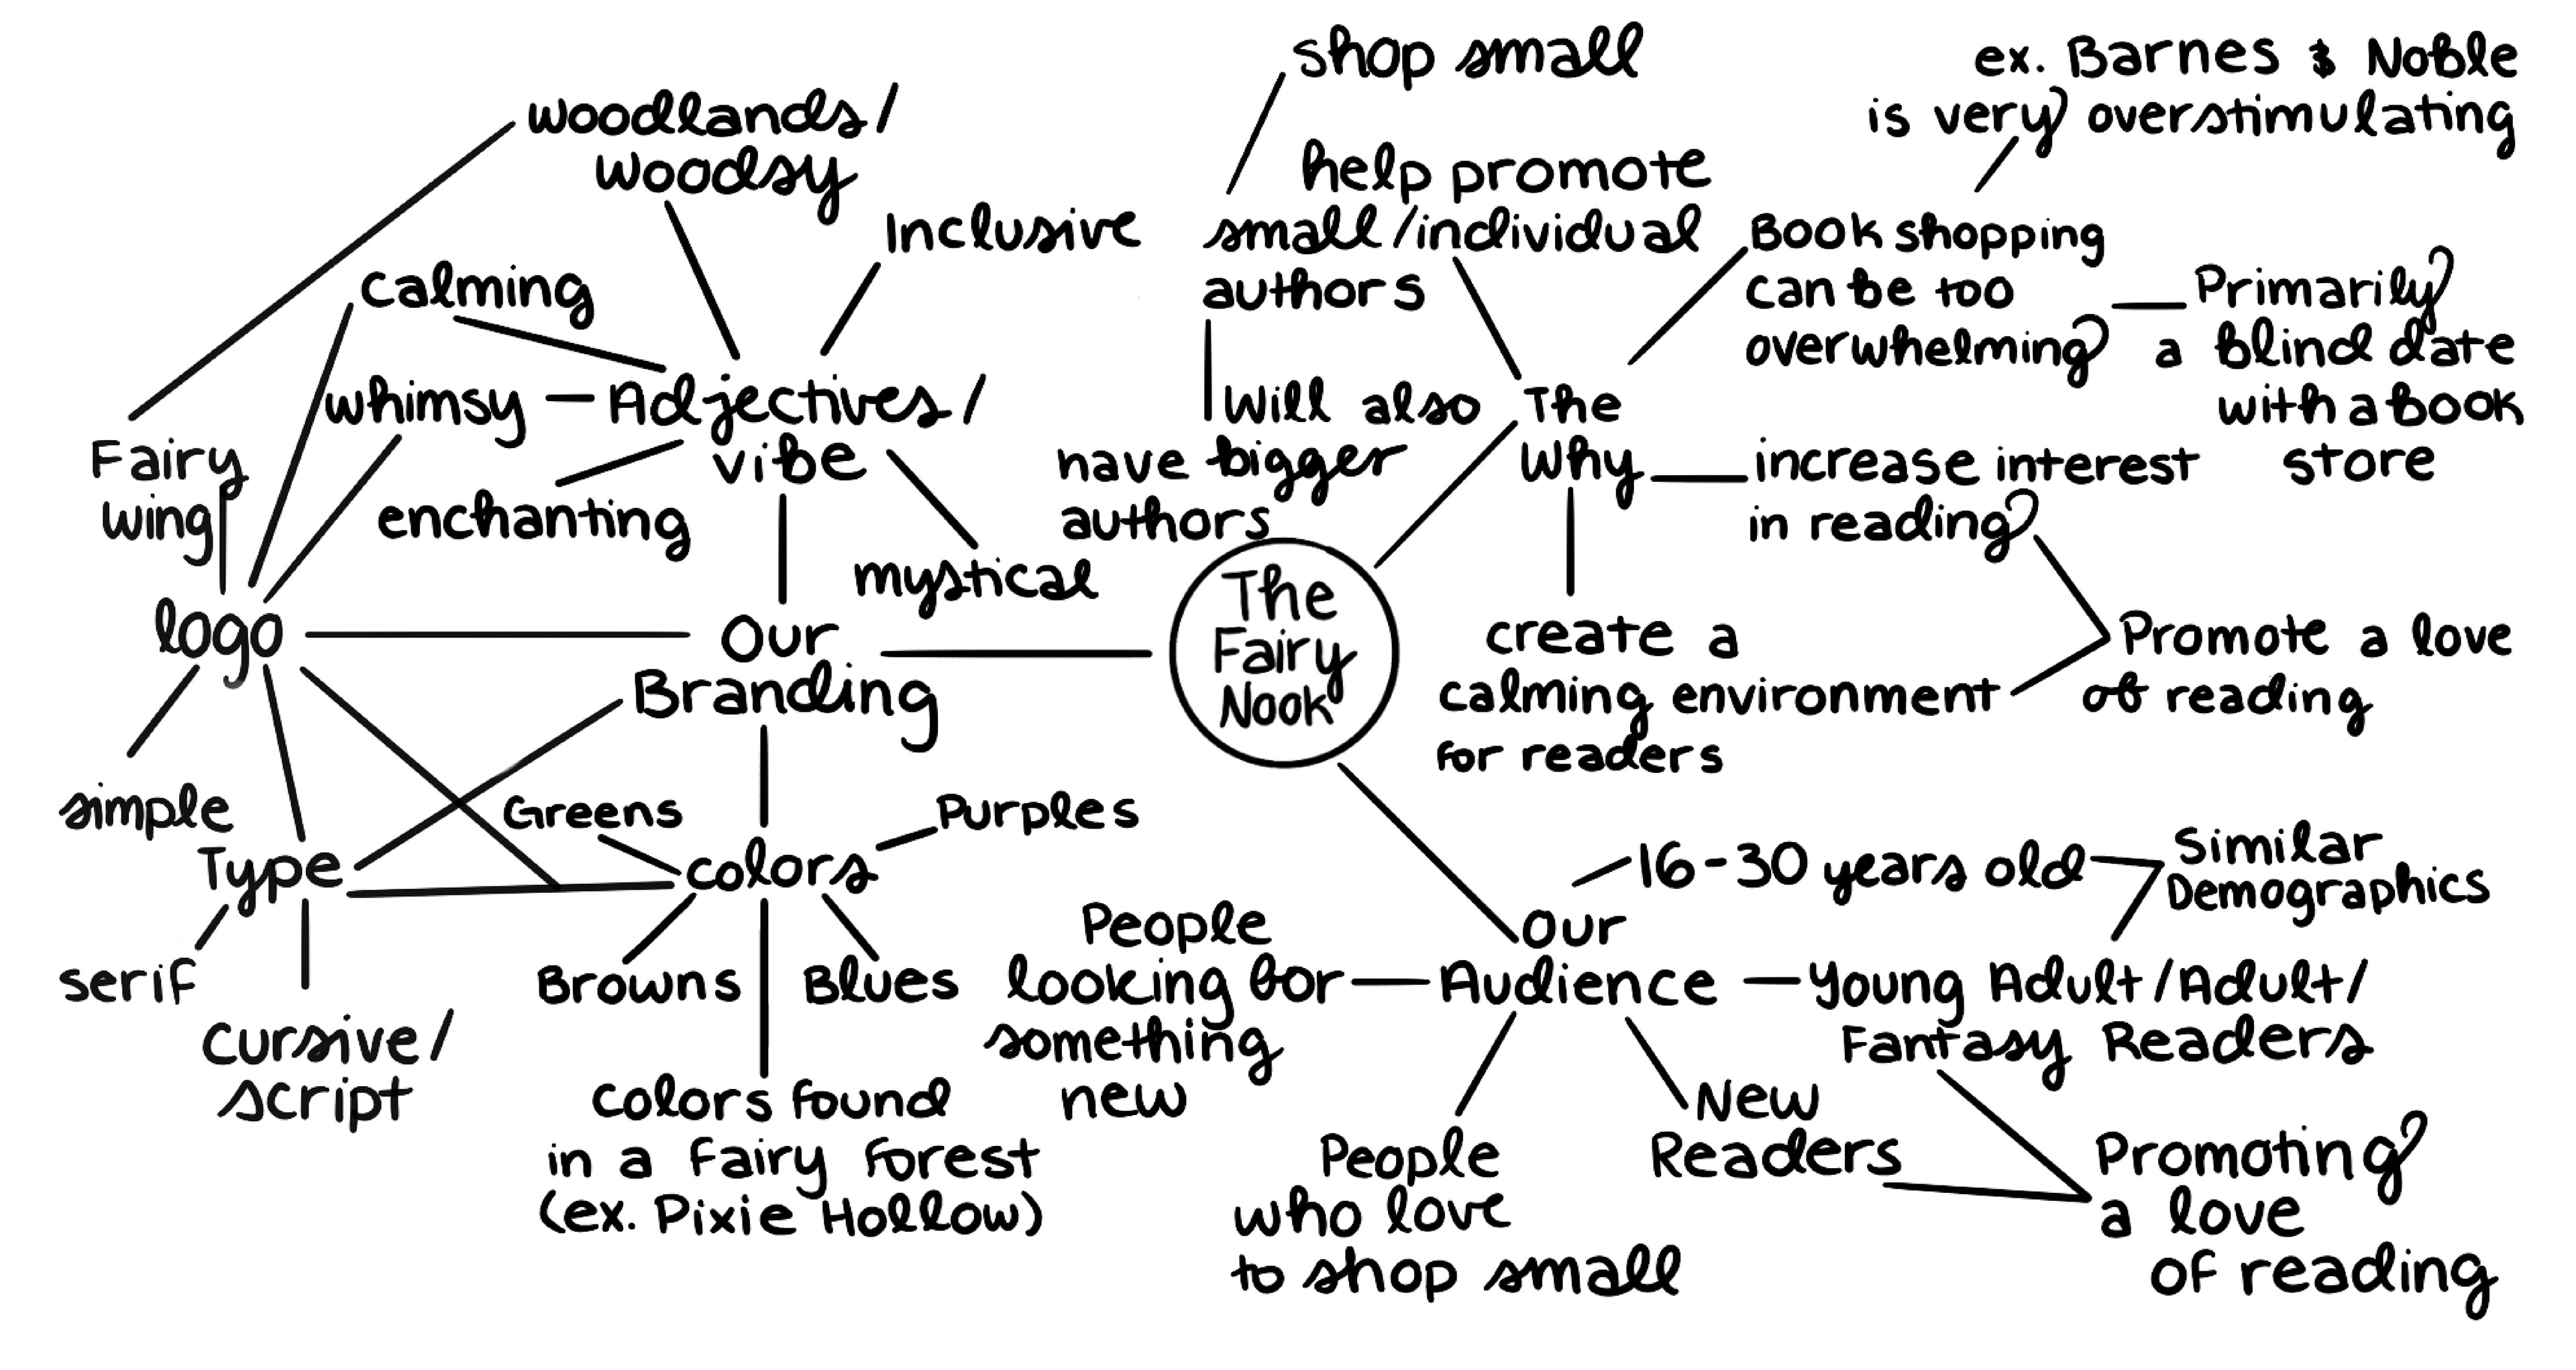 woodlands/
woodsy
Inclusive
calming
whimsy
Adjectives/
vibe
enchanting
mystical
Fairy
wing
logo
simple
Our
Branding
Type
serif
cursive/
script
Greens
Purples
colors
Browns
Blues
colors found
in a fairy forest
(ex. Pixie Hollow)
The
Fairy
Nook
shop small
help promote
small/individual
authors
Will also
have bigger
authors
The
Why
ex. Barnes & Noble
is very overstimulating
Book shopping
can be too
overwhelming
Primarily
a blind date
with a book
store
increase interest
in reading
create a
calming environment
for readers
Promote a love
of reading
Our
Audience
16-30 years old
Similar
Demographics
Young Adult/Adult/
Fantasy Readers
People
looking for
something
new
People
who love
to shop small
New
Readers
Promoting
a love
of reading